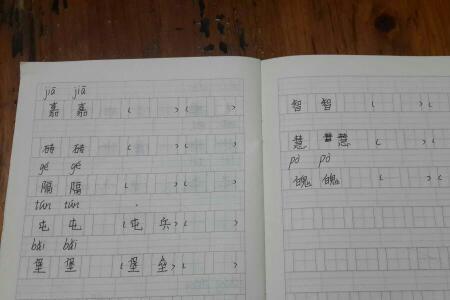 jiā jiā
嘉 嘉 ( ) ( )
砖 砖 ( ) ( )
gé gé
隔 隔 ( ) ( )
tún tún
屯 屯 (屯 兵) ( )
bǎi bǎi
堡 堡 (堡 垒) ( )
智 智 ( ) (
慧 慧 慧 ( ) (
pò pò
魄 魄 ( ) (